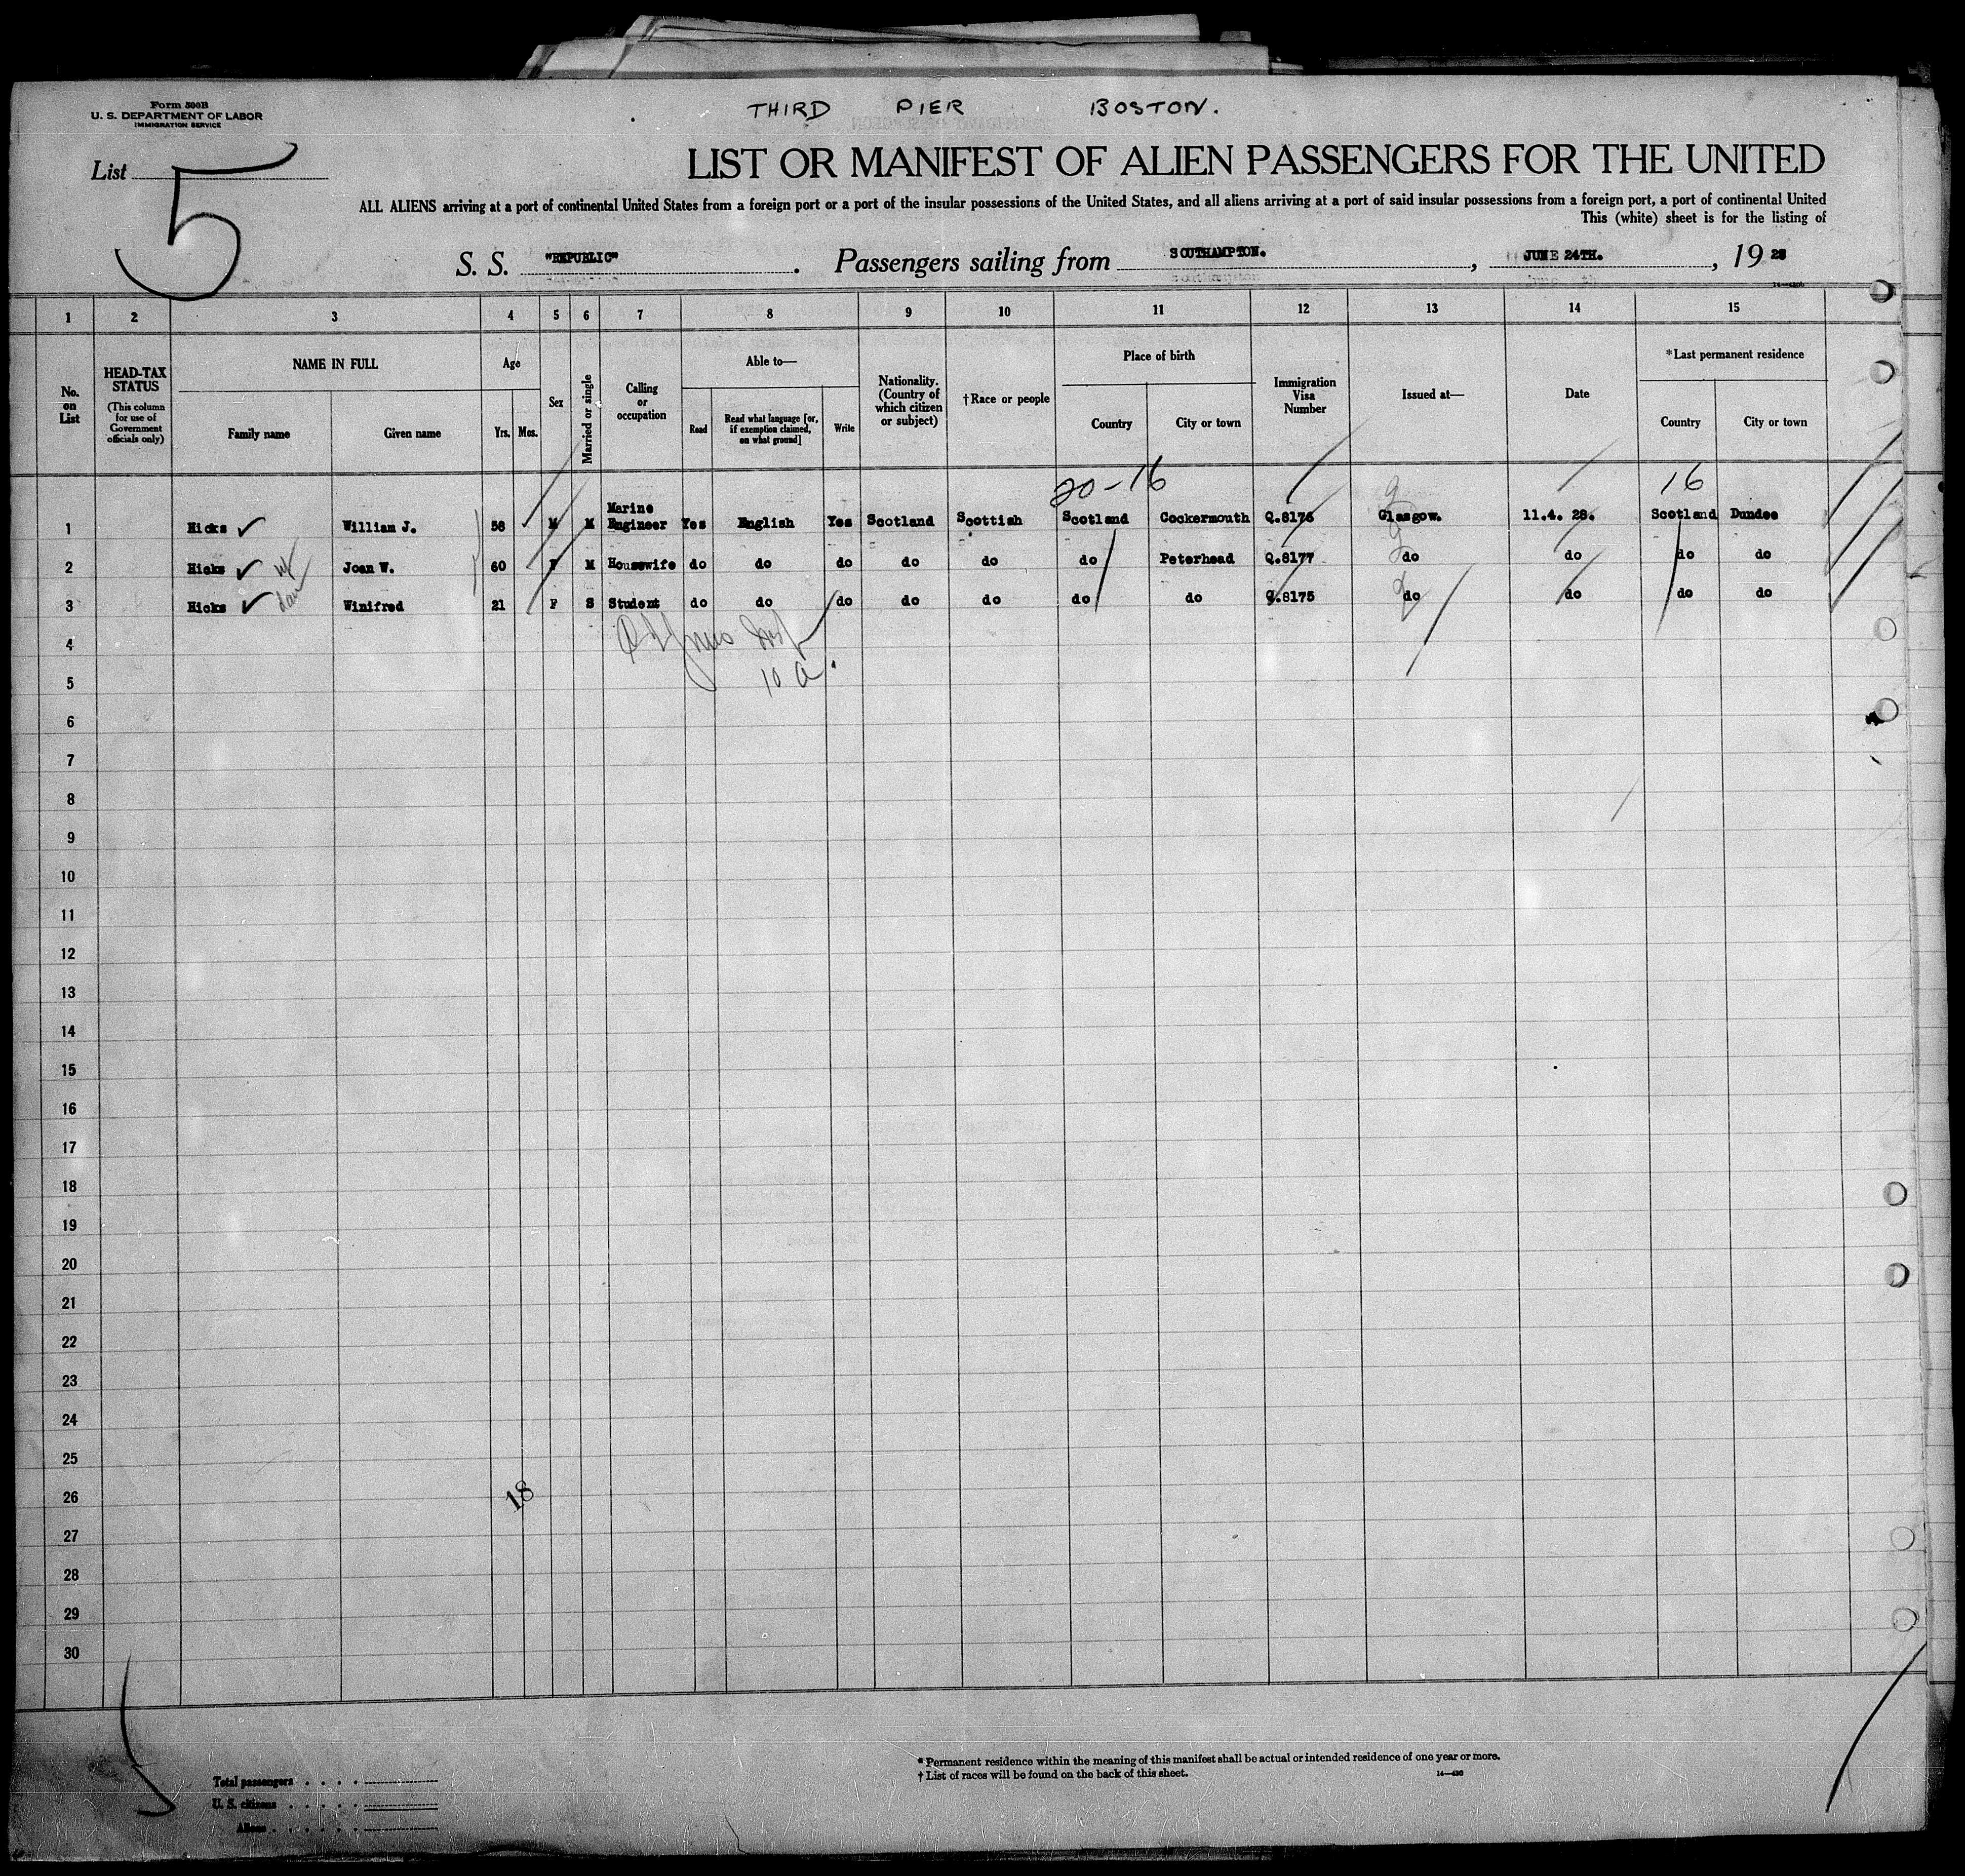 Form 500B
U. S. DEPARTMENT OF LABOR
IMMIGRATION SERVICE
THIRD PIER BOSTON.
List 5
LIST OR MANIFEST OF ALIEN PASSENGERS FOR THE UNITED
ALL ALIENS arriving at a port of continental United States from a foreign port or a port of the insular possessions of the United States, and all aliens arriving at a port of said insular possessions from a foreign port, a port of continental United
This (white) sheet is for the listing of
S. S. "REPUBLIC". Passengers sailing from SOUTHAMPTON., JUNE 24TH., 19 28
1 2 3 4 5 6 7 8 9 10 11 12 13 14 15
No. on List
HEAD-TAX STATUS
(This column for use of Government officials only)
NAME IN FULL
Family name Given name
Age
Yrs. Mos.
Sex
Married or single
Calling or occupation
Able to—
Read
Read what language [or, if exemption claimed, on what ground]
Write
Nationality. (Country of which citizen or subject)
†Race or people
Place of birth
Country City or town
Immigration Visa Number
Issued at—
Date
*Last permanent residence
Country City or town
20-16 16
1 Hicks William J. 58 M M Marine Engineer Yes English Yes Scotland Scottish Scotland Cockermouth Q.8176 Glasgow. 11.4. 28. Scotland Dundee
2 Hicks Joan W. 60 F M Housewife do do do do do do Peterhead Q.8177 do do do do
3 Hicks Winifred 21 F S Student do do do do do do do Q.8175 do do do do
4
10 a
5
6
7
8
9
10
11
12
13
14
15
16
17
18
19
20
21
22
23
24
25
26
18
27
28
29
30
* Permanent residence within the meaning of this manifest shall be actual or intended residence of one year or more.
† List of races will be found on the back of this sheet.
Total passengers
U. S. citizens
Aliens